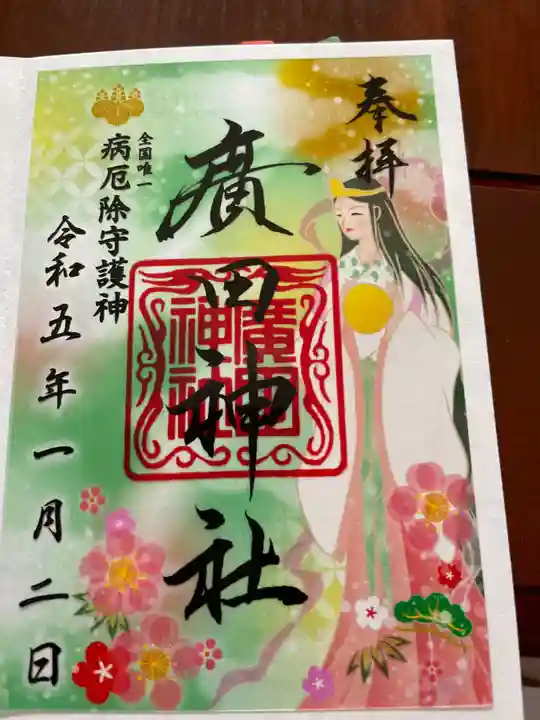 奉拝
廣田神社
廣田
神社
全国唯一
病厄除守護神
令和五年一月二日